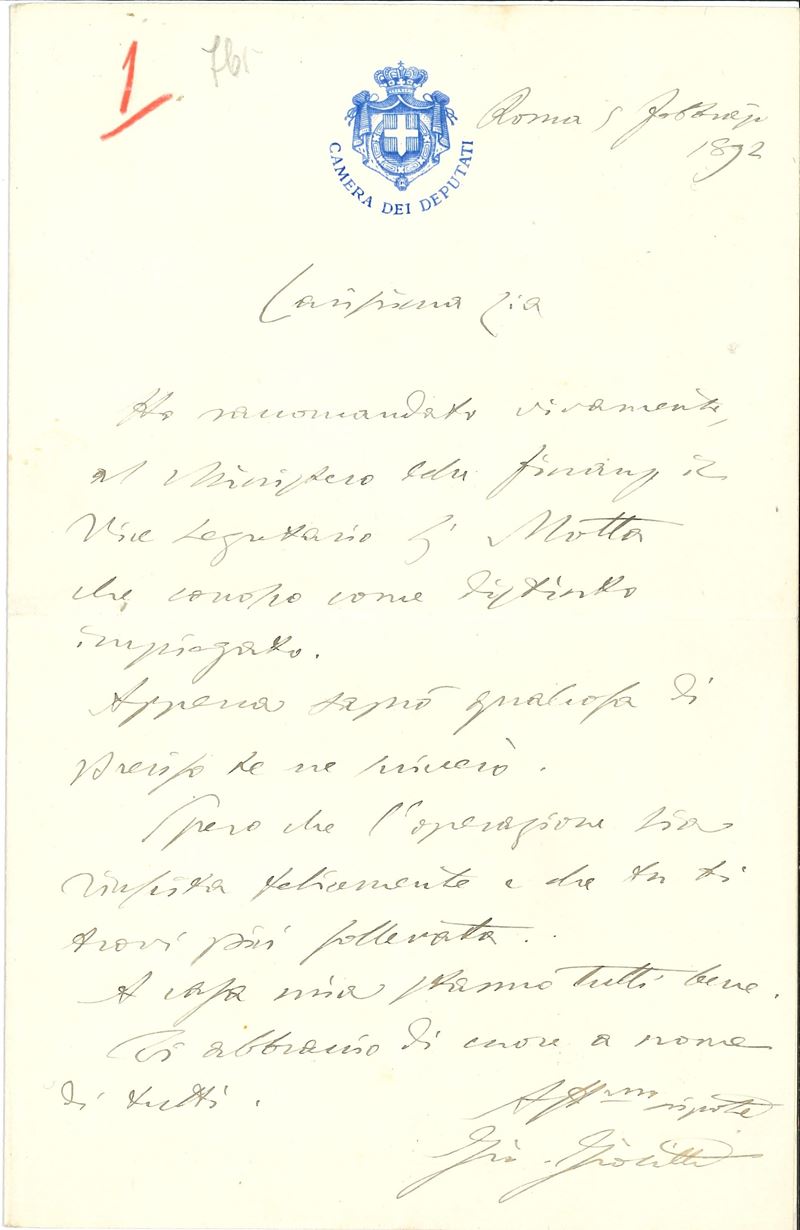 1
Roma 5 febbraio
1892
CAMERA DEI DEPUTATI
Carissima Zia
Ho raccomandato vivamente,
al Ministero delle finanze il
Vice Segretario Motta
che conosco come distinto
impiegato.
Appena saprò qualcosa di
preciso te ne scriverò.
Spero che l'operazione sia
riuscita felicemente e che tu ti
trovi più sollevata.
A casa mia stanno tutti bene.
Ti abbraccio di cuore a nome
di tutti.
Affmo nipote
Gio. Giolitti